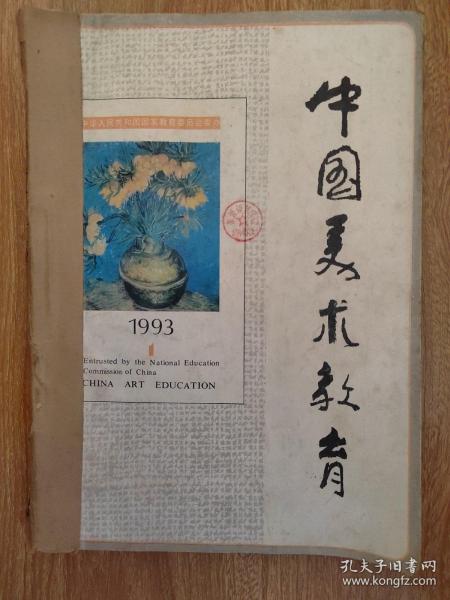 中国美术教育
中华人民共和国国家教育委员会委办
1993
1
Entrusted by the National Education
Commission of China
CHINA ART EDUCATION
孔夫子旧书网
www.kongfz.com